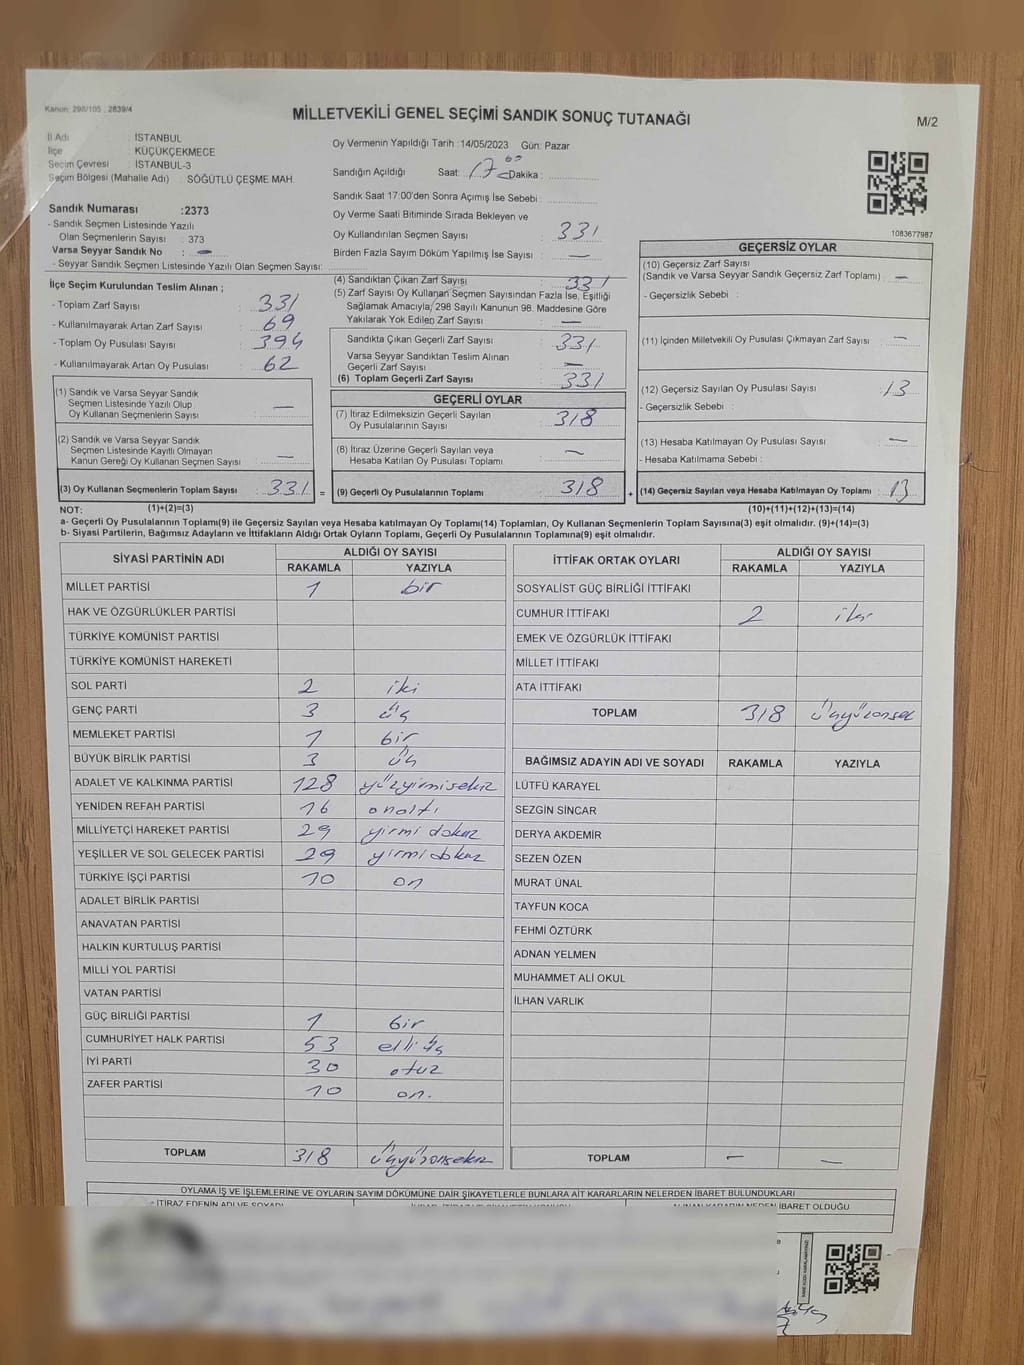 Kanun: 298/105 , 2839/4
MİLLETVEKİLİ GENEL SEÇİMİ SANDIK SONUÇ TUTANAĞI
M/2
İl Adı : İSTANBUL
İlçe : KÜÇÜKÇEKMECE
Seçim Çevresi : İSTANBUL-3
Seçim Bölgesi (Mahalle Adı) : SÖĞÜTLÜ ÇEŞME MAH.
Sandık Numarası :2373
- Sandık Seçmen Listesinde Yazılı
Olan Seçmenlerin Sayısı : 373
Varsa Seyyar Sandık No : —
- Seyyar Sandık Seçmen Listesinde Yazılı Olan Seçmen Sayısı:
Oy Vermenin Yapıldığı Tarih :14/05/2023 Gün: Pazar
Sandığın Açıldığı Saat: 17 Dakika :
Sandık Saat 17:00'den Sonra Açılmış İse Sebebi :
Oy Verme Saati Bitiminde Sırada Bekleyen ve
Oy Kullandırılan Seçmen Sayısı : 331
Birden Fazla Sayım Döküm Yapılmış İse Sayısı : —
1083677987
İlçe Seçim Kurulundan Teslim Alınan ;
- Toplam Zarf Sayısı : 331
- Kullanılmayarak Artan Zarf Sayısı : 69
- Toplam Oy Pusulası Sayısı : 394
- Kullanılmayarak Artan Oy Pusulası : 62
(1) Sandık ve Varsa Seyyar Sandık
Seçmen Listesinde Yazılı Olup
Oy Kullanan Seçmenlerin Sayısı : —
(2) Sandık ve Varsa Seyyar Sandık
Seçmen Listesinde Kayıtlı Olmayan
Kanun Gereği Oy Kullanan Seçmen Sayısı : —
(3) Oy Kullanan Seçmenlerin Toplam Sayısı : 331 =
(4) Sandıktan Çıkan Zarf Sayısı : 331
(5) Zarf Sayısı Oy Kullanan Seçmen Sayısından Fazla İse, Eşitliği
Sağlamak Amacıyla, 298 Sayılı Kanunun 98. Maddesine Göre
Yakılarak Yok Edilen Zarf Sayısı : —
Sandıkta Çıkan Geçerli Zarf Sayısı : 331
Varsa Seyyar Sandıktan Teslim Alınan
Geçerli Zarf Sayısı : —
(6) Toplam Geçerli Zarf Sayısı : 331
GEÇERLİ OYLAR
(7) İtiraz Edilmeksizin Geçerli Sayılan
Oy Pusulalarının Sayısı : 318
(8) İtiraz Üzerine Geçerli Sayılan veya
Hesaba Katılan Oy Pusulası Toplamı : —
(9) Geçerli Oy Pusulalarının Toplamı : 318 +
GEÇERSİZ OYLAR
(10) Geçersiz Zarf Sayısı
(Sandık ve Varsa Seyyar Sandık Geçersiz Zarf Toplamı) : —
- Geçersizlik Sebebi :
(11) İçinden Milletvekili Oy Pusulası Çıkmayan Zarf Sayısı : —
(12) Geçersiz Sayılan Oy Pusulası Sayısı : 13
- Geçersizlik Sebebi :
(13) Hesaba Katılmayan Oy Pusulası Sayısı : —
- Hesaba Katılmama Sebebi :
(14) Geçersiz Sayılan veya Hesaba Katılmayan Oy Toplamı : 13
NOT: (1)+(2)=(3) (10)+(11)+(12)+(13)=(14)
a- Geçerli Oy Pusulalarının Toplamı(9) ile Geçersiz Sayılan veya Hesaba katılmayan Oy Toplamı(14) Toplamları, Oy Kullanan Seçmenlerin Toplam Sayısına(3) eşit olmalıdır. (9)+(14)=(3)
b- Siyasi Partilerin, Bağımsız Adayların ve İttifakların Aldığı Ortak Oyların Toplamı, Geçerli Oy Pusulalarının Toplamına(9) eşit olmalıdır.
SİYASİ PARTİNİN ADI ALDIĞI OY SAYISI
RAKAMLA YAZIYLA
MİLLET PARTİSİ 1 bir
HAK VE ÖZGÜRLÜKLER PARTİSİ
TÜRKİYE KOMÜNİST PARTİSİ
TÜRKİYE KOMÜNİST HAREKETİ
SOL PARTİ 2 iki
GENÇ PARTİ 3 üç
MEMLEKET PARTİSİ 1 bir
BÜYÜK BİRLİK PARTİSİ 3 üç
ADALET VE KALKINMA PARTİSİ 128 yüzyirmisekiz
YENİDEN REFAH PARTİSİ 16 onaltı
MİLLİYETÇİ HAREKET PARTİSİ 29 yirmi dokuz
YEŞİLLER VE SOL GELECEK PARTİSİ 29 yirmi dokuz
TÜRKİYE İŞÇİ PARTİSİ 10 on
ADALET BİRLİK PARTİSİ
ANAVATAN PARTİSİ
HALKIN KURTULUŞ PARTİSİ
MİLLİ YOL PARTİSİ
VATAN PARTİSİ
GÜÇ BİRLİĞİ PARTİSİ 1 bir
CUMHURİYET HALK PARTİSİ 53 elli üç
İYİ PARTİ 30 otuz
ZAFER PARTİSİ 10 on.
TOPLAM 318 üçyüzonsekiz
İTTİFAK ORTAK OYLARI ALDIĞI OY SAYISI
RAKAMLA YAZIYLA
SOSYALİST GÜÇ BİRLİĞİ İTTİFAKI
CUMHUR İTTİFAKI 2 iki
EMEK VE ÖZGÜRLÜK İTTİFAKI
MİLLET İTTİFAKI
ATA İTTİFAKI
TOPLAM 318 üçyüzonsek
BAĞIMSIZ ADAYIN ADI VE SOYADI RAKAMLA YAZIYLA
LÜTFÜ KARAYEL
SEZGİN SİNCAR
DERYA AKDEMİR
SEZEN ÖZEN
MURAT ÜNAL
TAYFUN KOCA
FEHMİ ÖZTÜRK
ADNAN YELMEN
MUHAMMET ALİ OKUL
İLHAN VARLIK
TOPLAM — —
OYLAMA İŞ VE İŞLEMLERİNE VE OYLARIN SAYIM DÖKÜMÜNE DAİR ŞİKAYETLERLE BUNLARA AİT KARARLARIN NELERDEN İBARET BULUNDUKLARI
- İTİRAZ EDENİN ADI VE SOYADI İBARET OLDUĞU